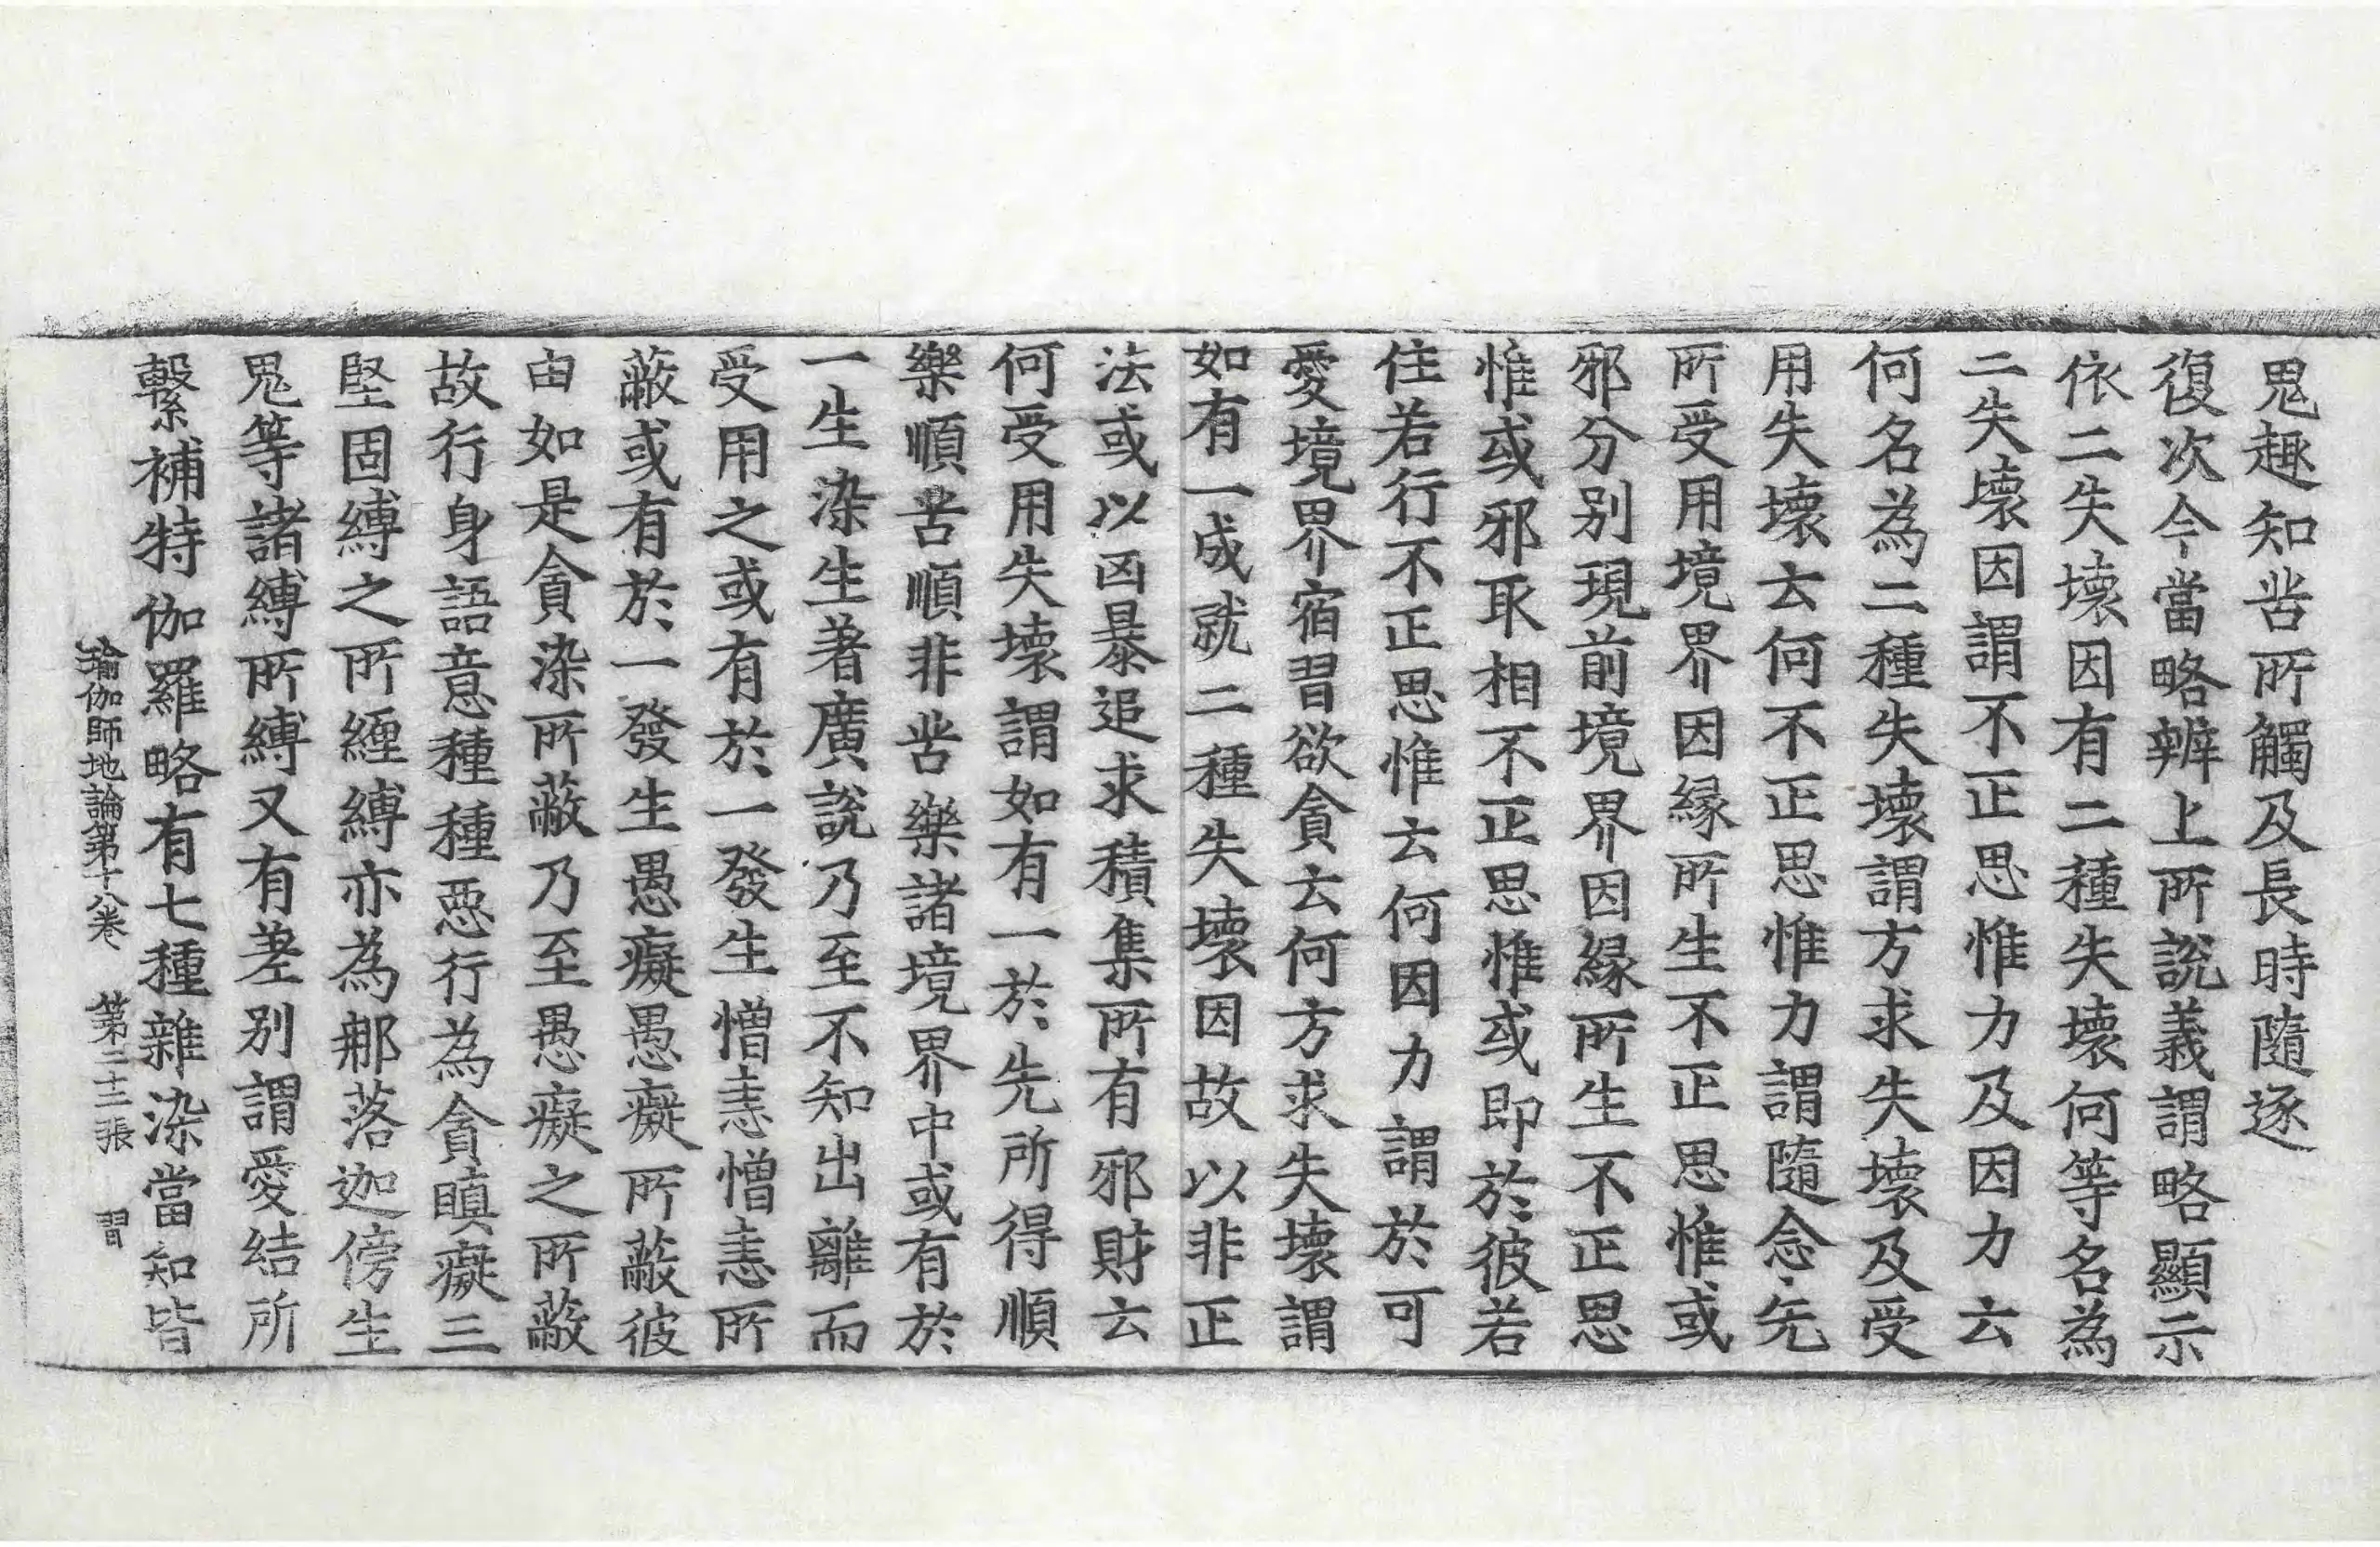 鬼趣知苦所觸及長時隨逐
復次今當略辨上所說義謂略顯示
依二失壞因有二種失壞何等名為
二失壞因謂不正思惟力及因力云
何名為二種失壞謂方求失壞及受
用失壞云何不正思惟力謂隨念先
所受用境界因緣所生不正思惟或
邪分别現前境界因緣所生不正思
惟或邪取相不正思惟或即於彼若
住若行不正思惟云何因力謂於可
愛境界宿習欲貪云何方求失壞謂
如有一成就二種失壞因故以非正
法或以凶暴追求積集所有邪財云
何受用失壞謂如有一於先所得順
樂順苦順非苦樂諸境界中或有於
一生染生著廣說乃至不知出離而
受用之或有於一發生憎恚憎恚所
蔽或有於一發生愚癡愚癡所蔽彼
由如是貪染所蔽乃至愚癡之所蔽
故行身語意種種惡行為貪瞋癡三
堅固縛之所纏縛亦為那落迦傍生
鬼等諸縛所縛又有差别謂愛結所
繫補特伽羅略有七種雜染當知皆
瑜伽師地論第十八卷 第二十三張 習